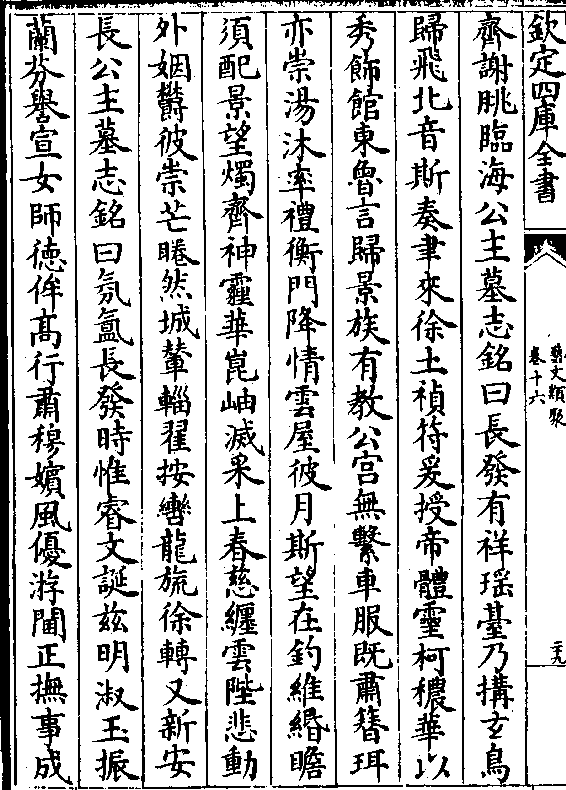 欽定四庫全書
藝文類聚
卷十六
二十九
齊謝朓臨海公主墓志銘曰長發有祥瑶臺乃搆玄鳥
歸飛北音斯奏聿來徐土禎符爰授帝體靈柯穠華以
秀飾館東魯言歸景族有教公宮無繫車服既肅簪珥
亦崇湯沐率禮衡門降情雲屋彼月斯望在鈞維緡瞻
須配景望燭齊神霾華崑岫滅采上春慈纏雲陛悲動
外姻欝彼崇芒睠然城輦輜翟按轡龍旐徐轉又新安
長公主墓志銘曰氛氳長發時惟睿文誕兹明淑玉振
蘭芬譽宣女師徳侔髙行肅穆嬪風優游閫正撫事成